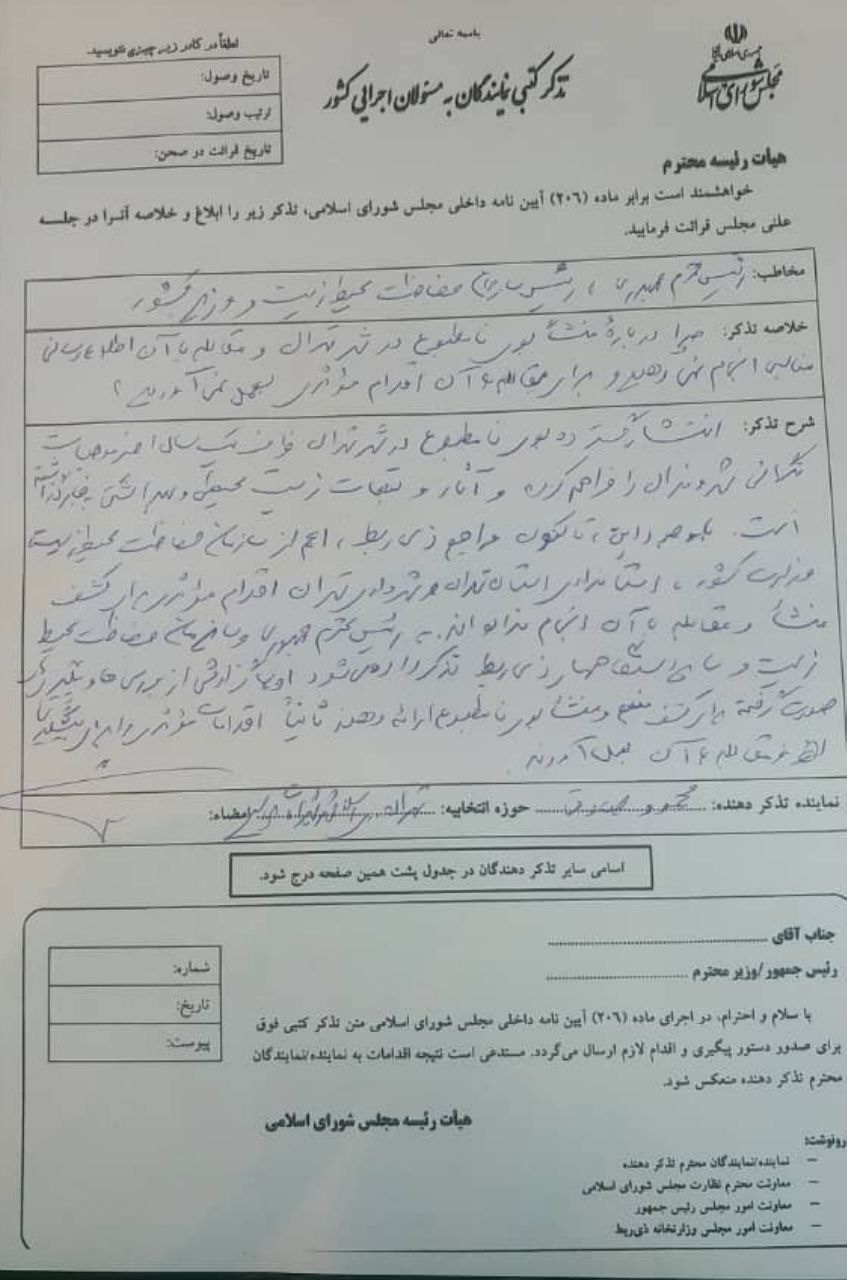 باسمه تعالی
جمهوری اسلامی ایران
مجلس شورای اسلامی
تذکر کتبی نمایندگان به مسئولان اجرایی کشور
لطفاً در کادر زیر چیزی ننویسید.
تاریخ وصول:
ترتیب وصول:
تاریخ قرائت در صحن:
هیأت رئیسه محترم
خواهشمند است برابر ماده (۲۰۶) آیین نامه داخلی مجلس شورای اسلامی، تذکر زیر را ابلاغ و خلاصه آنرا در جلسه
علنی مجلس قرائت فرمایید.
مخاطب: رئیس محترم جمهوری، رئیس سازمان حفاظت محیط زیست و وزیر کشور
خلاصه تذکر: چرا درباره منشأ بوی نامطبوع در شهر تهران و مقابله با آن اطلاع رسانی
مناسبی انجام نمی دهید و برای مقابله با آن اقدام مؤثری بعمل نمی آورید؟
شرح تذکر: انتشار گسترده بوی نامطبوع در شهر تهران ظرف یک سال اخیر موجبات
نگرانی شهروندان را فراهم کرده و آثار و تبعات زیست محیطی و بهداشتی بجا گذاشته
است. باوجود این، تاکنون مراجع ذی ربط، اعم از سازمان حفاظت محیط زیست
وزارت کشور، استانداری استان تهران و شهرداری تهران اقدام مؤثری برای کشف
منشأ و مقابله با آن انجام نداده اند. به رئیس محترم جمهوری و سازمان حفاظت محیط
زیست و سایر دستگاههای ذی ربط تذکر داده می شود اولاً گزارشی از بررسی ها و پیگیری های
صورت گرفته برای کشف منبع و منشأ بوی نامطبوع ارائه دهند ثانیاً اقدامات مؤثری را برای پیشگیری
و مقابله با آن بعمل آورند.
نماینده تذکر دهنده: محمود صادقی حوزه انتخابیه: تهران، ری، امضاء:
اسامی سایر تذکر دهندگان در جدول پشت همین صفحه درج شود.
جناب آقای
رئیس جمهور/وزیر محترم
شماره:
تاریخ:
پیوست:
با سلام و احترام، در اجرای ماده (۲۰۶) آیین نامه داخلی مجلس شورای اسلامی متن تذکر کتبی فوق
برای صدور دستور پیگیری و اقدام لازم ارسال می‌گردد. مستدعی است نتیجه اقدامات به نماینده/نمایندگان
محترم تذکر دهنده منعکس شود.
هیأت رئیسه مجلس شورای اسلامی
رونوشت:
– نماینده/نمایندگان محترم تذکر دهنده
– معاونت محترم نظارت مجلس شورای اسلامی
– معاونت امور مجلس رئیس جمهور
– معاونت امور مجلس وزارتخانه ذی‌ربط